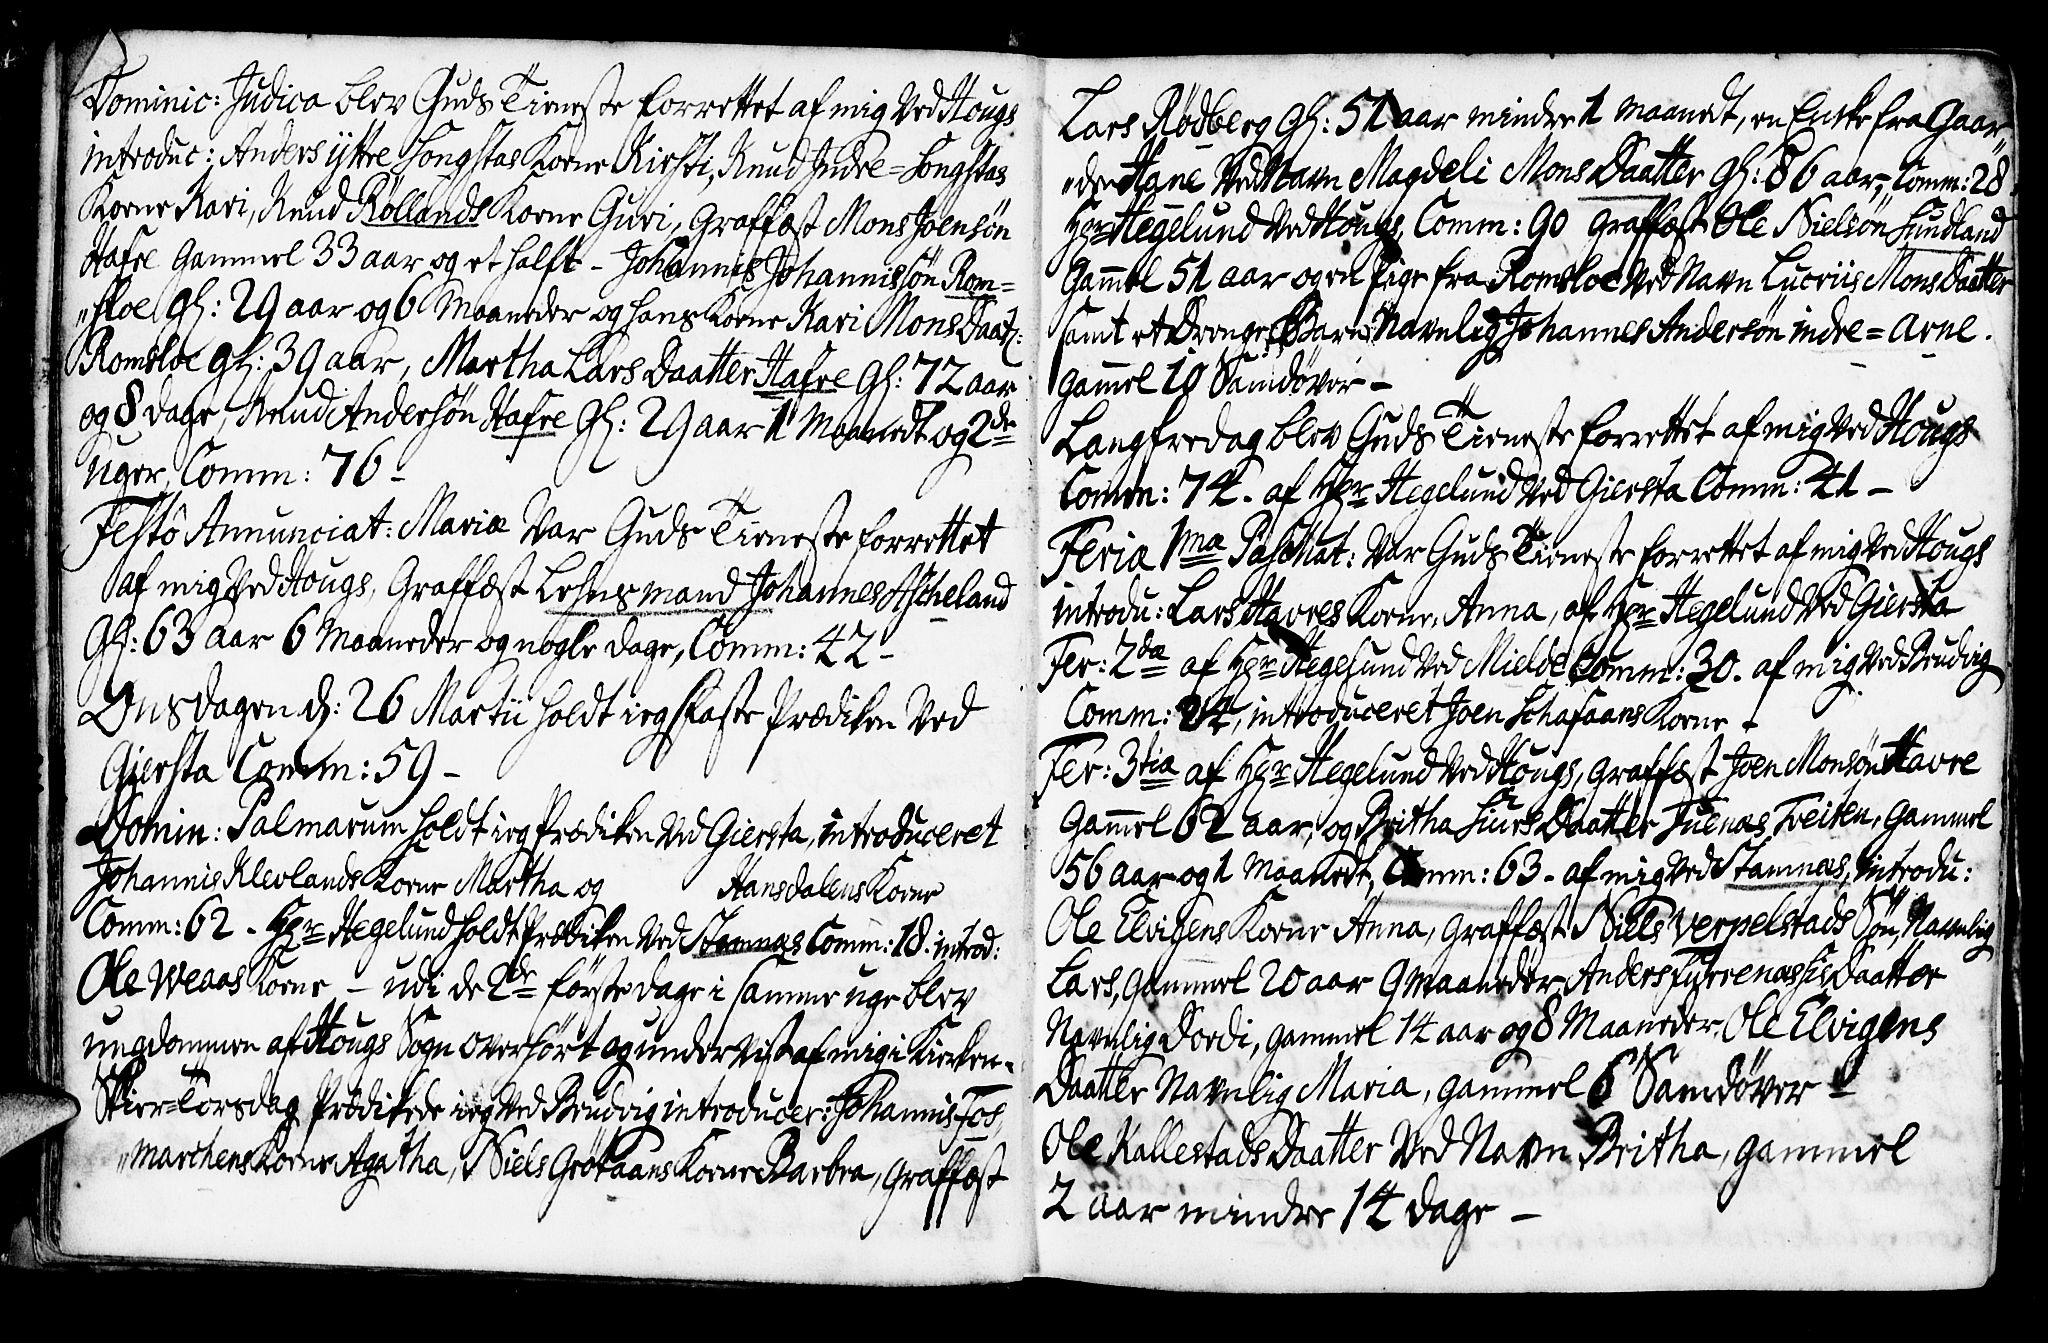 Dominic: Judica blev Guds Tieneste forrettet af mig ved Hougs
introduc: Anders ÿttre Songstas Kone Kirsti, Knud Indre=Songstas
Kone Kari, Knud Røllands Kone Guri, Graffæst Mons Joensøn
Hafre Gammel 33 aar og et halft - Johannis Johannissøn Rom=
„sloe Gl: 29 aar og 6 Maaneder og hans Kone Kari Mons Daat:
Romsloe gl: 39 aar, Martha Lars Daatter Hafre Gl: 72 aar
og 8 dage, Knud Andersøn Hafre Gl: 29 aar 1 Maanedt og 2de
Uger, Comm: 76 -
Festô Annunciat: Mariæ var Guds Tieneste forrettet
af mig ved Hougs, Graffæst Lehnsmand Johannes Ascheland
Gl: 63 aar 6 Maaneder og nogle dage, Comm: 42 -
Onsdagen d: 26 Martii holdt ieg Faste Prædiken ved
Giersta Comm: 59 -
Domin: Palmarum holdt ieg Prædiken ved Giersta, introduceret
Johannis Klevlands Kone Martha og Hansdalens Kone
Comm: 62 - Hr Hegelund holdt Prædiken ved Stamnæs Comm: 18: introd:
Ole Weaas Kone - udi de 2de første dage i samme uge blev
ungdommen af Hougs Sogn overhørt og undervist af mig i Kirken -
Skier=Torsdag Prædikede ieg ved Brudvig introducer: Johannis Fos,
„marchens Kone Agatha, Niels Grøtaans Kone Barbra, Graffæst
Lars Rødberg Gl: 51 aar mindre 1 maanedt, en Enke fra Gaar„
„den Hane ved Navn Magdeli Mons Daatter Gl: 86 aar, Comm: 28
Hr Hegelund ved Hougs, Comm: 90 Graffæst Ole Nielsøn Sundland
Gammel 51 aar og en Pige fra Romsloe ved Navn Lucriis Mons Daatter
samt et Drenge Barn Navnlig Johannes Andersøn indre=Arne.
gammel 10 Samdøver -
Langfredag blev Guds Tieneste forrettet af mig ved Hougs
Comm: 74. af Hr Hegelund ved Giersta Comm: 41 -
Feria 1ma Paschat: var Guds Tieneste forrettet af mig ved Hougs
introdu: Lars Havres Kone, Anna, af Hr Hegelund ved Giersta
Fer: 2da af Hr Hegelund ved Mielde Comm: 30. af mig ved Brudvig
Comm: 24, introduceret Joen Schafaans Kone -
Fer: 3tia af Hr Hegelund ved Hougs, graffæst Joen Monsøn Havre
Gammel 62 aar, og Britha Siurs Daatter Fuenæs Treiten, Gammel
56 aar og 1 Maanedt, Comm: 63 - af mig ved Stamnæs, introdu:
Ole Elvigens Kone Anna, graffæst Niels Verpelstads Søn, Navnlig
Lars, Gammel 20 aar 9 Maaneder, Anders Furrenæs hs Daatter
Navnlig Dordi, gammel 14 aar og 8 Maaneder, Ole Elvigens
Daatter Navnlig Maria, gammel 6 Samdøver -
Ole Kallestads Daatter ved Navn Britha, gammel
2 aar mindre 14 dage -